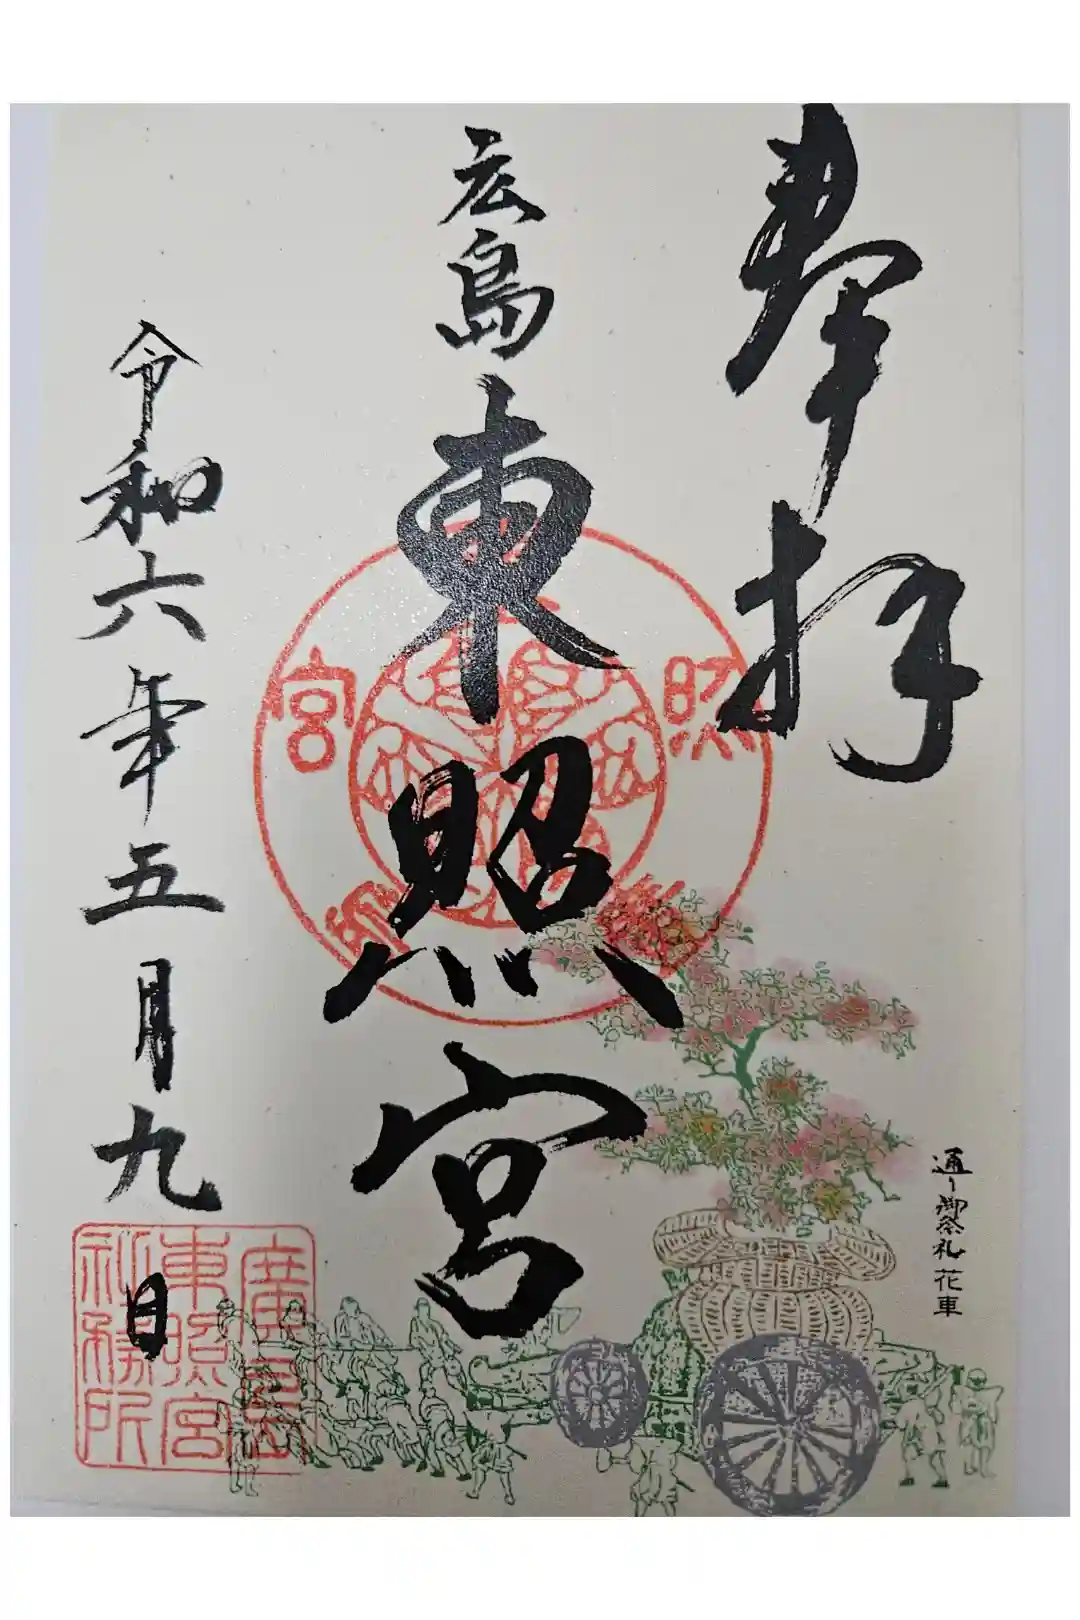 奉拝
広島東照宮
令和六年五月九日
通り御祭礼 花車
東照宮
廣島
東照宮
社務所